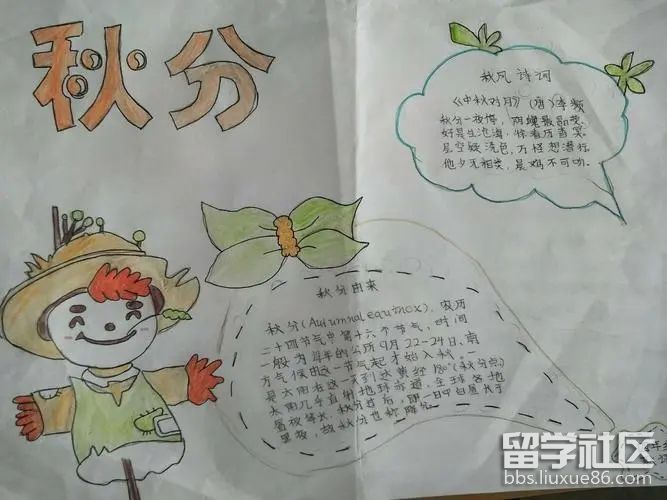 秋分
秋风诗词
《中秋对月》(唐)李频
秋分一夜停,阴魄最晶荧。
好是生沧海,徐看历杳冥。
层空疑洗色,万怪想潜形。
他夕无相类,晨鸡不可听。
秋分由来
秋分(Autumnal equinox),农历
二十四节气中第十六个节气,时间
一般为每年的公历9月22~24日。南
方气候由这一节气起才始入秋。
是太阳在这一天到达黄经180°(秋分点)
太阳几乎直射地球赤道,全球各地
昼夜等长。秋分过后,
黑夜,故秋分也称降分。
留学社区
bbs.liuxue86.com